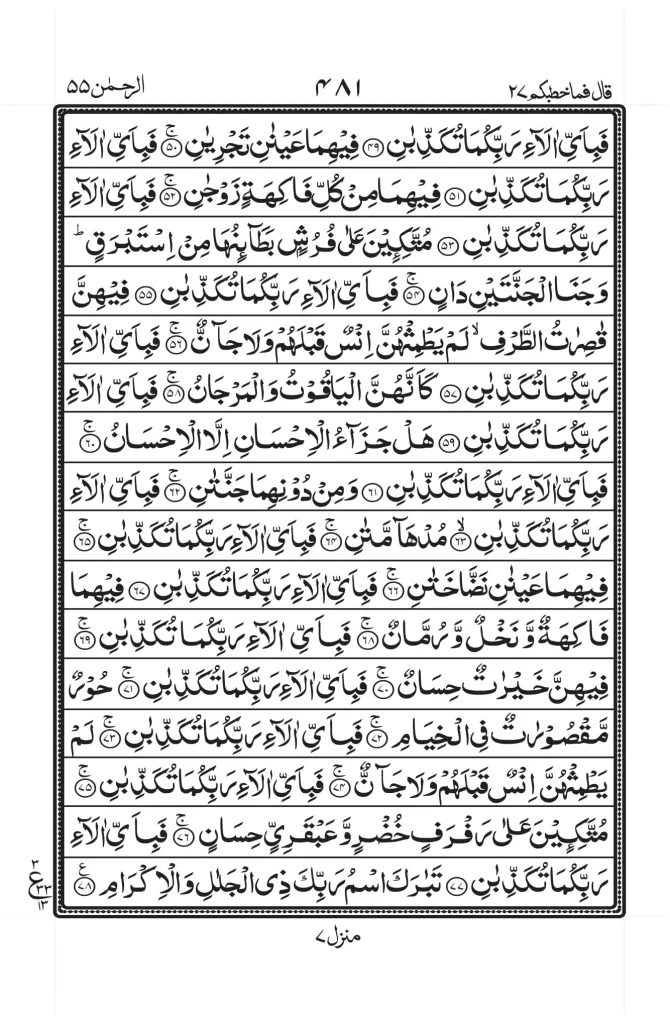 قال فماخطبكم ٢٧ ٤٨١ الرحمٰن ٥٥
فَبِاَىِّ اٰلَآءِ رَبِّكُمَا تُكَذِّبٰنِ ﴿٤٩﴾ فِيْهِمَا عَيْنٰنِ تَجْرِيٰنِ ۚ﴿٥٠﴾ فَبِاَىِّ اٰلَآءِ
رَبِّكُمَا تُكَذِّبٰنِ ﴿٥١﴾ فِيْهِمَا مِنْ كُلِّ فَاكِهَةٍ زَوْجٰنِ ۚ﴿٥٢﴾ فَبِاَىِّ اٰلَآءِ
رَبِّكُمَا تُكَذِّبٰنِ ﴿٥٣﴾ مُتَّكِـِٕيْنَ عَلٰى فُرُشٍۭ بَطَآىِٕنُهَا مِنْ اِسْتَبْرَقٍ ؕ
وَجَنَا الْجَنَّتَيْنِ دَانٍ ۚ﴿٥٤﴾ فَبِاَىِّ اٰلَآءِ رَبِّكُمَا تُكَذِّبٰنِ ﴿٥٥﴾ فِيْهِنَّ
قٰصِرٰتُ الطَّرْفِ ۙ لَمْ يَطْمِثْهُنَّ اِنْسٌ قَبْلَهُمْ وَلَا جَآنٌّ ۚ﴿٥٦﴾ فَبِاَىِّ اٰلَآءِ
رَبِّكُمَا تُكَذِّبٰنِ ﴿٥٧﴾ كَاَنَّهُنَّ الْيَاقُوْتُ وَالْمَرْجَانُ ۚ﴿٥٨﴾ فَبِاَىِّ اٰلَآءِ
رَبِّكُمَا تُكَذِّبٰنِ ﴿٥٩﴾ هَلْ جَزَآءُ الْاِحْسَانِ اِلَّا الْاِحْسَانُ ۚ﴿٦٠﴾
فَبِاَىِّ اٰلَآءِ رَبِّكُمَا تُكَذِّبٰنِ ﴿٦١﴾ وَمِنْ دُوْنِهِمَا جَنَّتٰنِ ۚ﴿٦٢﴾ فَبِاَىِّ اٰلَآءِ
رَبِّكُمَا تُكَذِّبٰنِ ۙ﴿٦٣﴾ مُدْهَآمَّتٰنِ ۚ﴿٦٤﴾ فَبِاَىِّ اٰلَآءِ رَبِّكُمَا تُكَذِّبٰنِ ۚ﴿٦٥﴾
فِيْهِمَا عَيْنٰنِ نَضَّاخَتٰنِ ۚ﴿٦٦﴾ فَبِاَىِّ اٰلَآءِ رَبِّكُمَا تُكَذِّبٰنِ ﴿٦٧﴾ فِيْهِمَا
فَاكِهَةٌ وَّنَخْلٌ وَّرُمَّانٌ ۚ﴿٦٨﴾ فَبِاَىِّ اٰلَآءِ رَبِّكُمَا تُكَذِّبٰنِ ۚ﴿٦٩﴾
فِيْهِنَّ خَيْرٰتٌ حِسَانٌ ۚ﴿٧٠﴾ فَبِاَىِّ اٰلَآءِ رَبِّكُمَا تُكَذِّبٰنِ ۚ﴿٧١﴾ حُوْرٌ
مَّقْصُوْرٰتٌ فِى الْخِيَامِ ۚ﴿٧٢﴾ فَبِاَىِّ اٰلَآءِ رَبِّكُمَا تُكَذِّبٰنِ ۚ﴿٧٣﴾ لَمْ
يَطْمِثْهُنَّ اِنْسٌ قَبْلَهُمْ وَلَا جَآنٌّ ۚ﴿٧٤﴾ فَبِاَىِّ اٰلَآءِ رَبِّكُمَا تُكَذِّبٰنِ ۚ﴿٧٥﴾
مُتَّكِـِٕيْنَ عَلٰى رَفْرَفٍ خُضْرٍ وَّعَبْقَرِىٍّ حِسَانٍ ۚ﴿٧٦﴾ فَبِاَىِّ اٰلَآءِ
رَبِّكُمَا تُكَذِّبٰنِ ﴿٧٧﴾ تَبٰرَكَ اسْمُ رَبِّكَ ذِى الْجَلٰلِ وَالْاِكْرَامِ ﴿٧٨﴾ ع
٣
ع ٣٣
١٣
منزل ٧